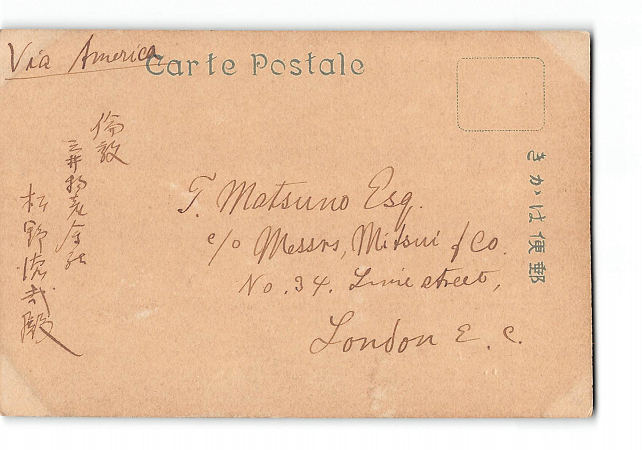 Via America
Carte Postale
倫敦
三井物産会社
松野
殿
T. Matsuno Esq.
c/o Messrs, Mitsui & Co.
No. 34. Lime street,
London E. C.
きかは便郵